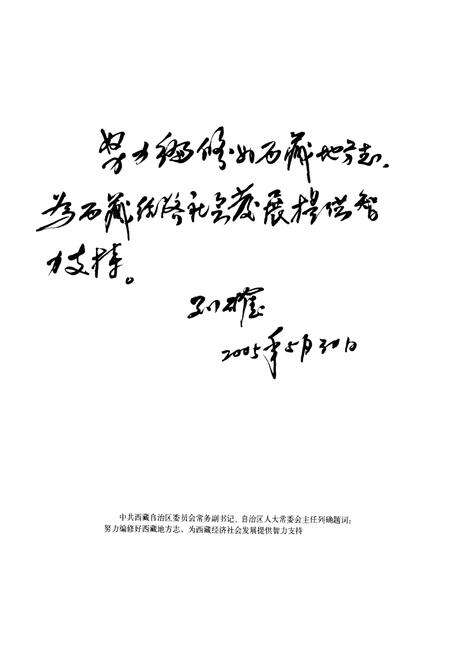 努力编修好西藏地方志，
为西藏经济社会发展提供智
力支持。
列確
2005年5月30日
中共西藏自治区委员会常务副书记、自治区人大常委会主任列确题词：
努力编修好西藏地方志、为西藏经济社会发展提供智力支持